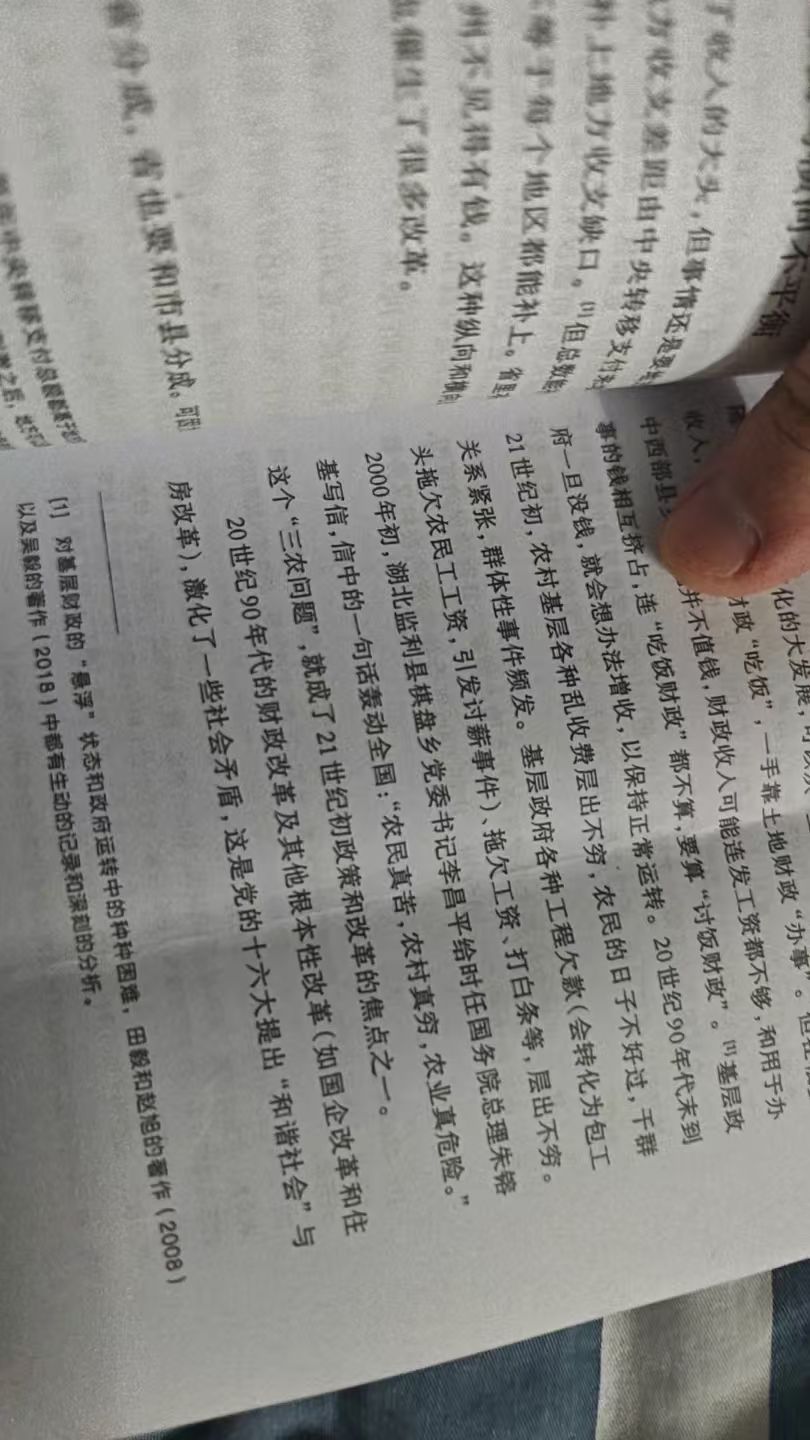 了收入的大头，但事情还是要
方收支差距由中央转移支付来
补上地方收支缺口。[1]但总数能
等于每个地区都能补上。省里
州不见得有钱。这种纵向和横向
催生了很多改革。
省分成，省也要和市县分成。可
在中央转移支付总额都
化的大发展，可以
财政“吃饭”，一手靠土地财政“办事”。但在
收入，
并不值钱，财政收入可能连发工资都不够，和用于办
中西部县
事的钱相互挤占，连“吃饭财政”都不算，要算“讨饭财政”。[1]基层政
府一旦没钱，就会想办法增收，以保持正常运转。20世纪90年代末到
21世纪初，农村基层各种乱收费层出不穷，农民的日子不好过，干群
关系紧张，群体性事件频发。基层政府各种工程欠款（会转化为包工
头拖欠农民工工资，引发讨薪事件）、拖欠工资、打白条等，层出不穷。
2000年初，湖北监利县棋盘乡党委书记李昌平给时任国务院总理朱镕
基写信，信中的一句话轰动全国：“农民真苦，农村真穷，农业真危险。”
这个“三农问题”，就成了21世纪初政策和改革的焦点之一。
20世纪90年代的财政改革及其他根本性改革（如国企改革和住
房改革），激化了一些社会矛盾，这是党的十六大提出“和谐社会”与
[1] 对基层财政的“悬浮”状态和政府运转中的种种困难，田毅和赵旭的著作（2008）
以及吴毅的著作（2018）中都有生动的记录和深刻的分析。